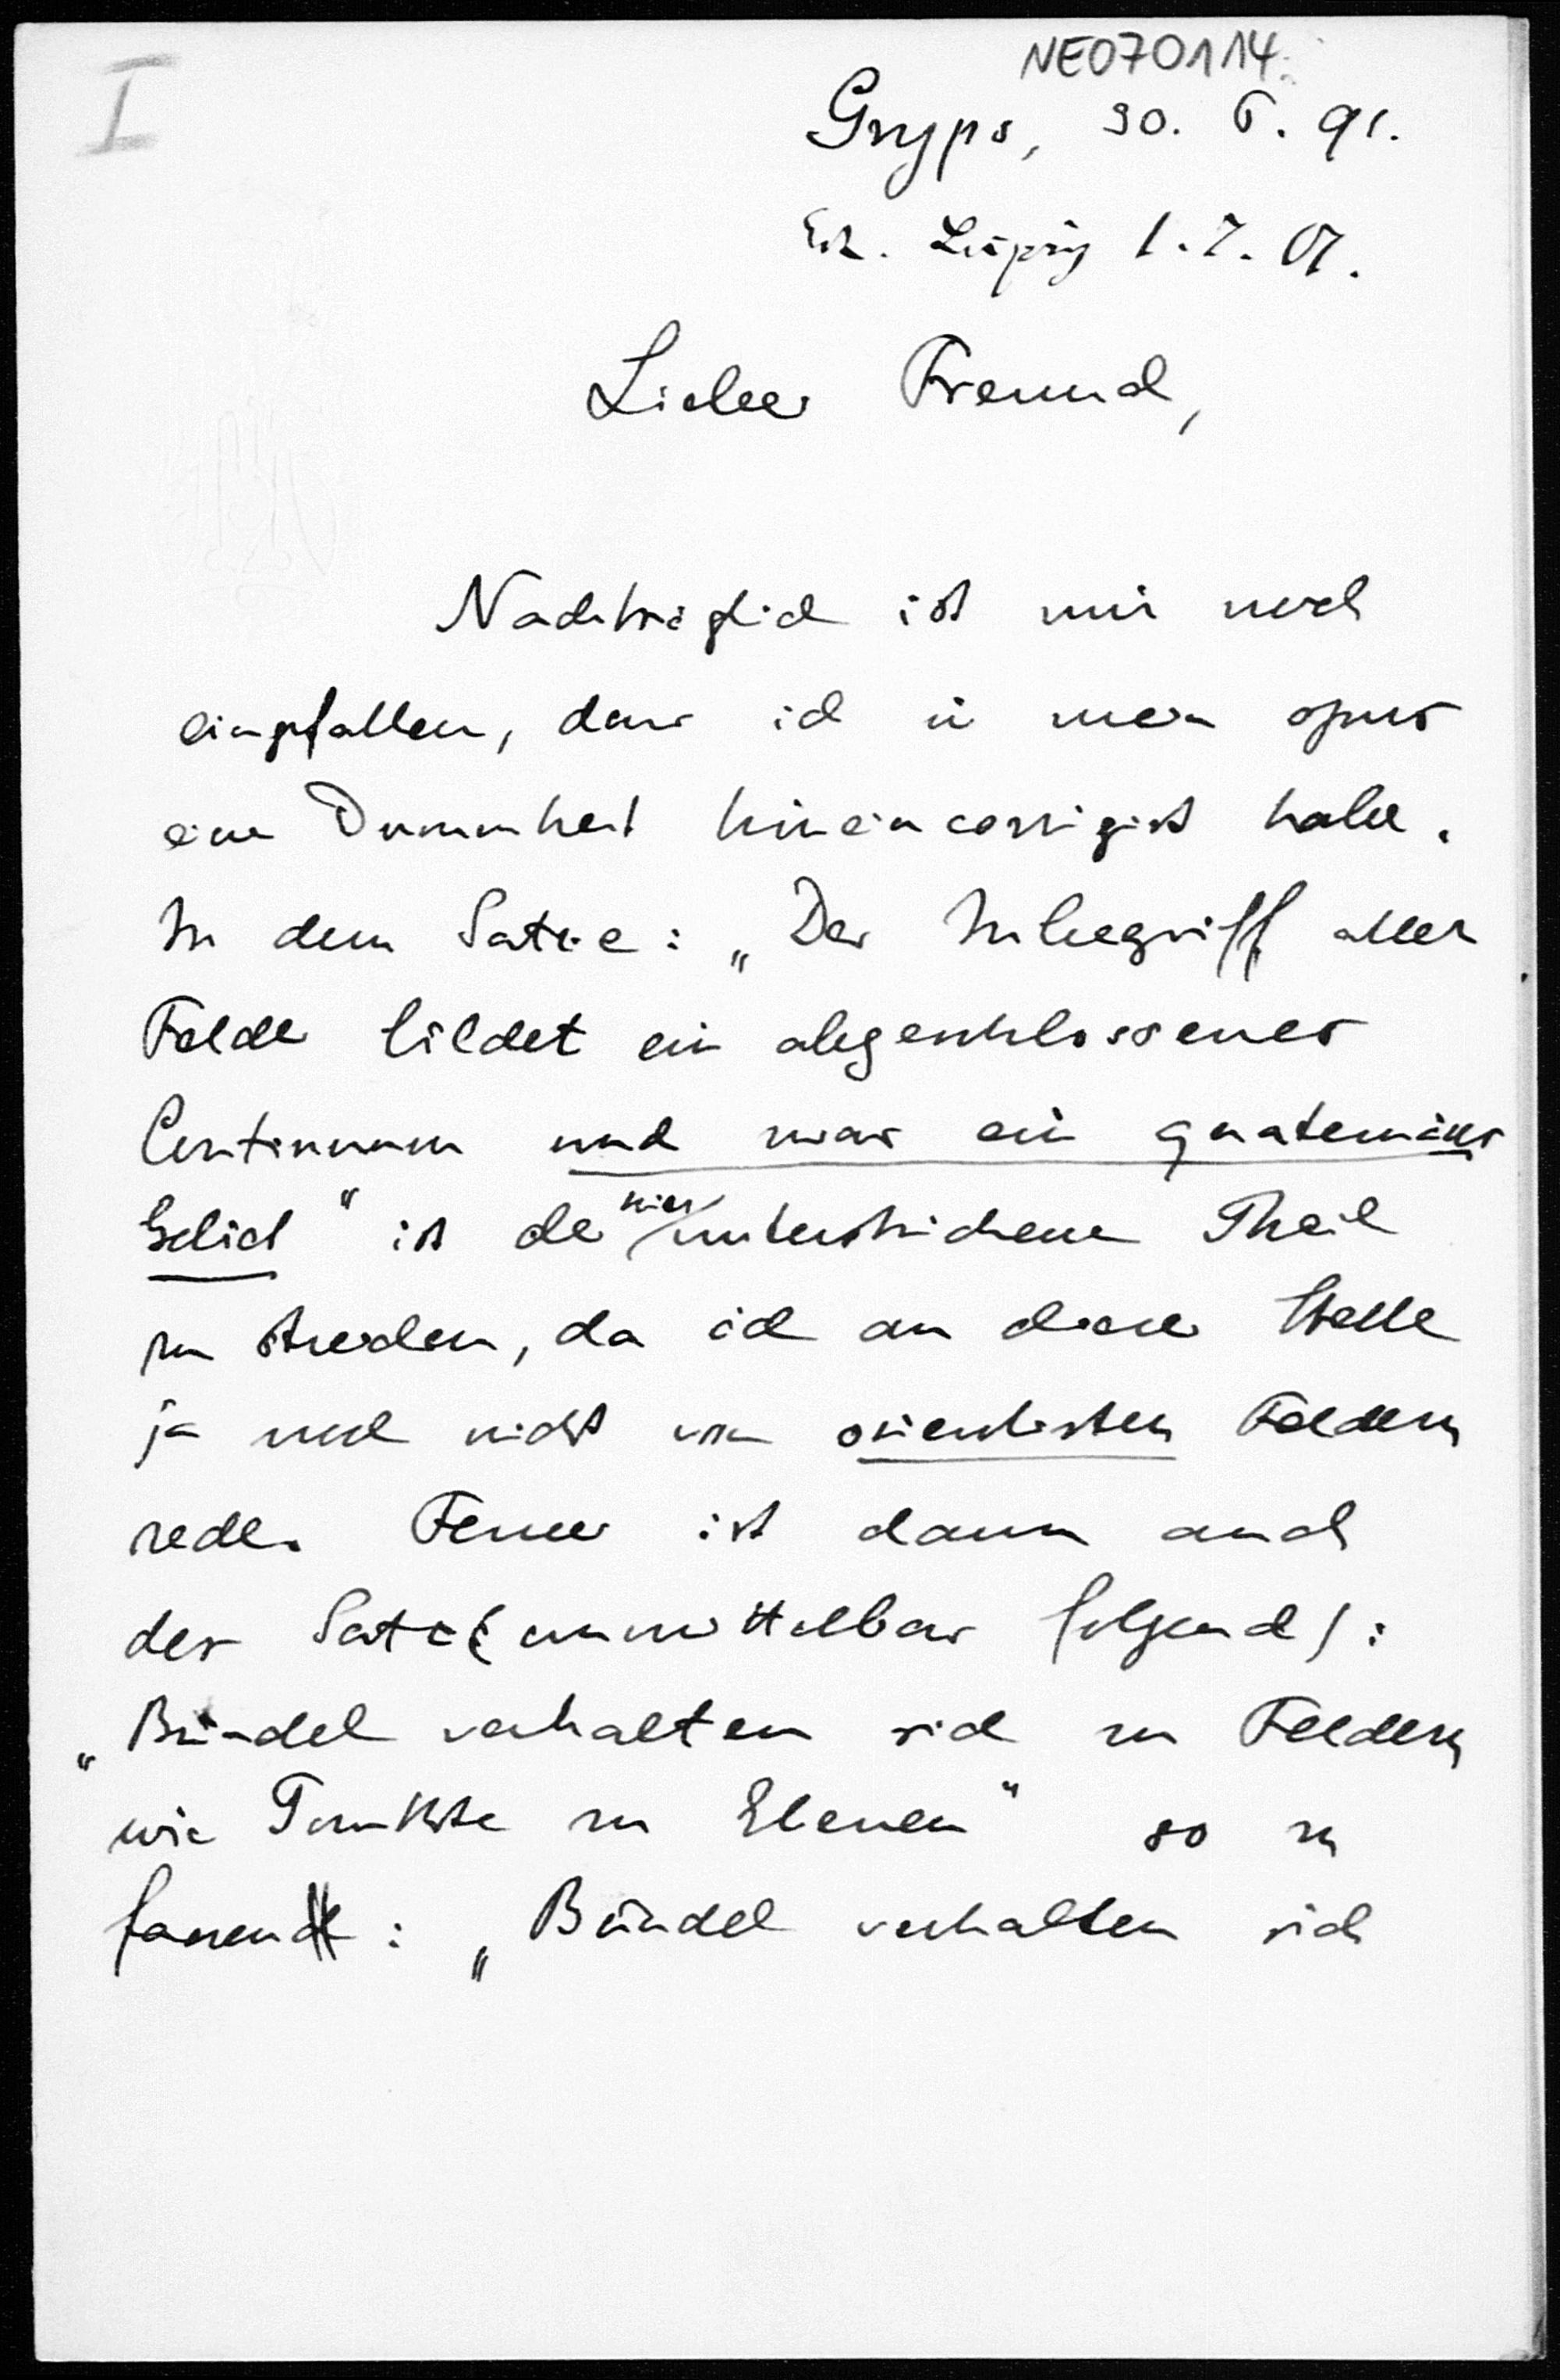 I
NE070114
Gryps, 30. 6. 91.
Erh. Leipzig 1.7.07.
Lieber Freund,
Nachträglich ist mir noch
eingefallen, dass ich in mein opus
eine Dummheit hineincorrigirt habe.
In dem Satze: „Der Inbegriff aller
Felder bildet ein abgeschlossenes
Continuum und zwar ein quaternäres
Gebiet" ist der hier unterstrichene Theil
zu streichen, da ich an dieser Stelle
ja noch nicht von orientirten Feldern
rede. Ferner ist dann auch
der Satz (unmittelbar folgend):
„Bündel verhalten sich zu Feldern
wie Punkte zu Ebenen" so zu
fassen: „Bündel verhalten sich